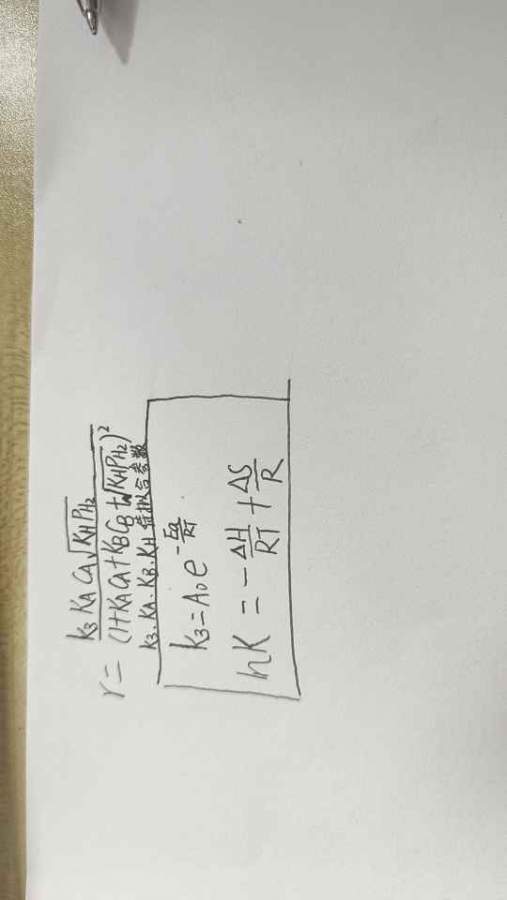 r = k₃ K_A C_A √(K_H P_H₂) / (1 + K_A C_A + K_B C_B + √(K_H P_H₂))²
k₃、K_A、K_B、K_H 待拟合参数
k₃ = A₀ e^(-Ea/RT)
lnK = -ΔH/RT + ΔS/R